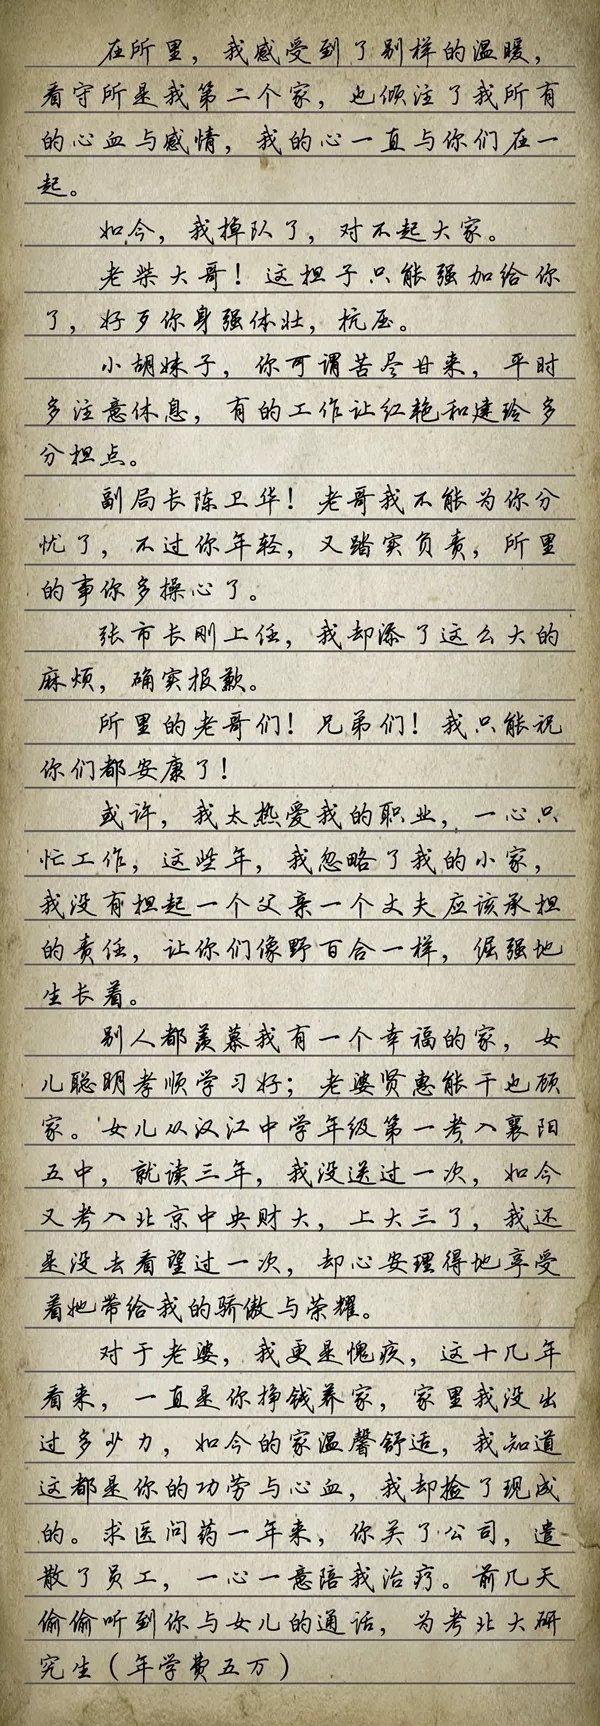 在所里，我感受到了别样的温暖，
看守所是我第二个家，也倾注了我所有
的心血与感情，我的心一直与你们在一
起。
如今，我掉队了，对不起大家。
老柴大哥！这担子只能强加给你
了，好歹你身强体壮，抗压。
小胡妹子，你可谓苦尽甘来，平时
多注意休息，有的工作让红艳和建玲多
分担点。
副局长陈卫华！老哥我不能为你分
忧了，不过你年轻，又踏实负责，所里
的事你多操心了。
张市长刚上任，我却添了这么大的
麻烦，确实报歉。
所里的老哥们！兄弟们！我只能祝
你们都安康了！
或许，我太热爱我的职业，一心只
忙工作，这些年，我忽略了我的小家，
我没有担起一个父亲一个丈夫应该承担
的责任，让你们像野百合一样，倔强地
生长着。
别人都羡慕我有一个幸福的家，女
儿聪明孝顺学习好；老婆贤惠能干也顾
家。女儿从汉江中学年级第一考入襄阳
五中，就读三年，我没送过一次，如今
又考入北京中央财大，上大三了，我还
是没去看望过一次，却心安理得地享受
着她带给我的骄傲与荣耀。
对于老婆，我更是愧疚，这十几年
看来，一直是你挣钱养家，家里我没出
过多少力，如今的家温馨舒适，我知道
这都是你的功劳与心血，我却捡了现成
的。求医问药一年来，你关了公司，遣
散了员工，一心一意陪我治疗。前几天
偷偷听到你与女儿的通话，为考北大研
究生（年学费五万）